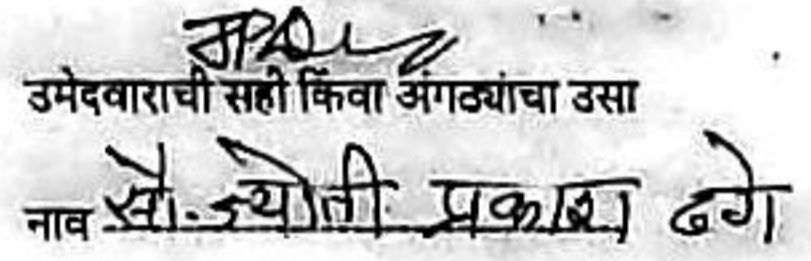 उमेदवाराची सही किंवा अंगठ्यांचा उसा
नाव सौ. ज्योती प्रकाश ढगे